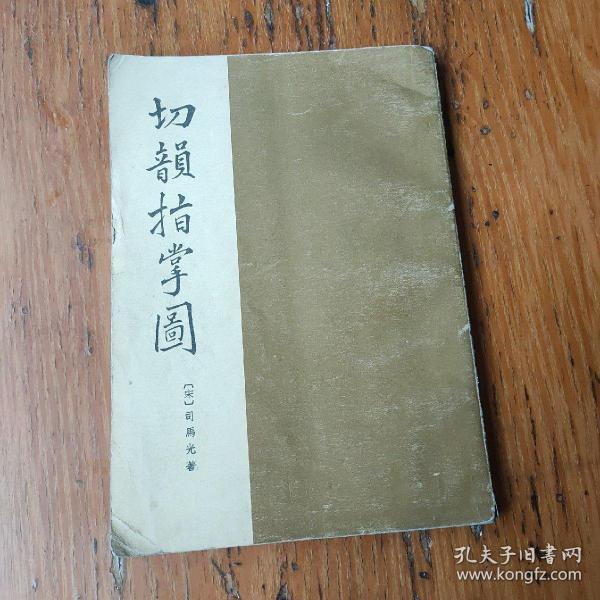 切韻指掌圖
〔宋〕司馬光著
孔夫子旧書网
www.kongfz.com